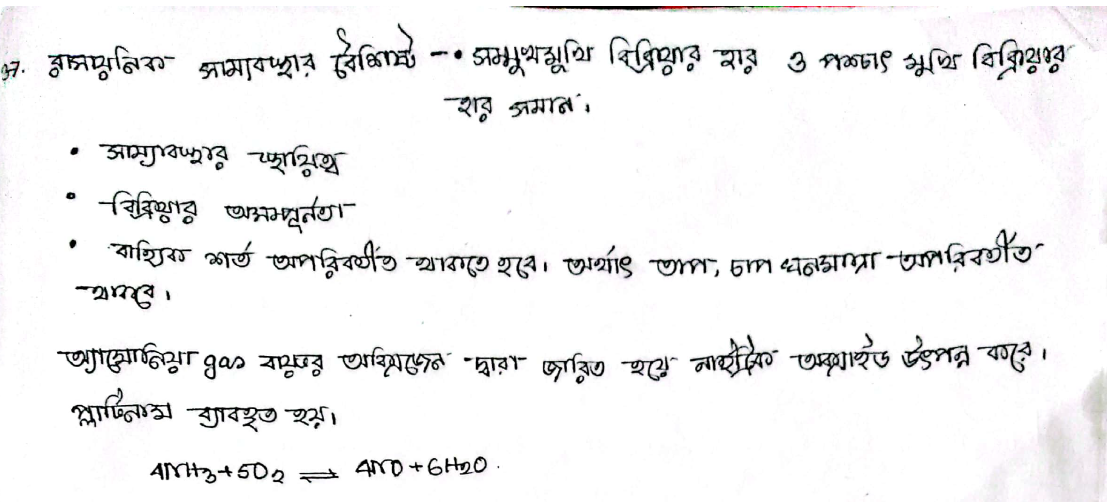 37. রাসায়নিক সাম্যবস্থার বৈশিষ্ট -• সম্মুখমুখি বিক্রিয়ার হার ও পশ্চাৎ মুখি বিক্রিয়ার
হার সমান।
• সাম্যাবস্থার স্থায়িত্ব
• বিক্রিয়ার অসম্পূর্নতা
• বাহ্যিক শর্ত অপরিবর্তীত থাকতে হবে। অর্থাৎ তাপ, চাপ ঘনমাত্রা অপরিবর্তীত
থাকবে।
অ্যামোনিয়া gas বায়ুর অক্সিজেন দ্বারা জারিত হয়ে নাইট্রিক অক্সাইড উৎপন্ন করে।
প্লাটিনাম ব্যাবহৃত হয়।
4NH3+5O2 ⇌ 4NO+6H2O.